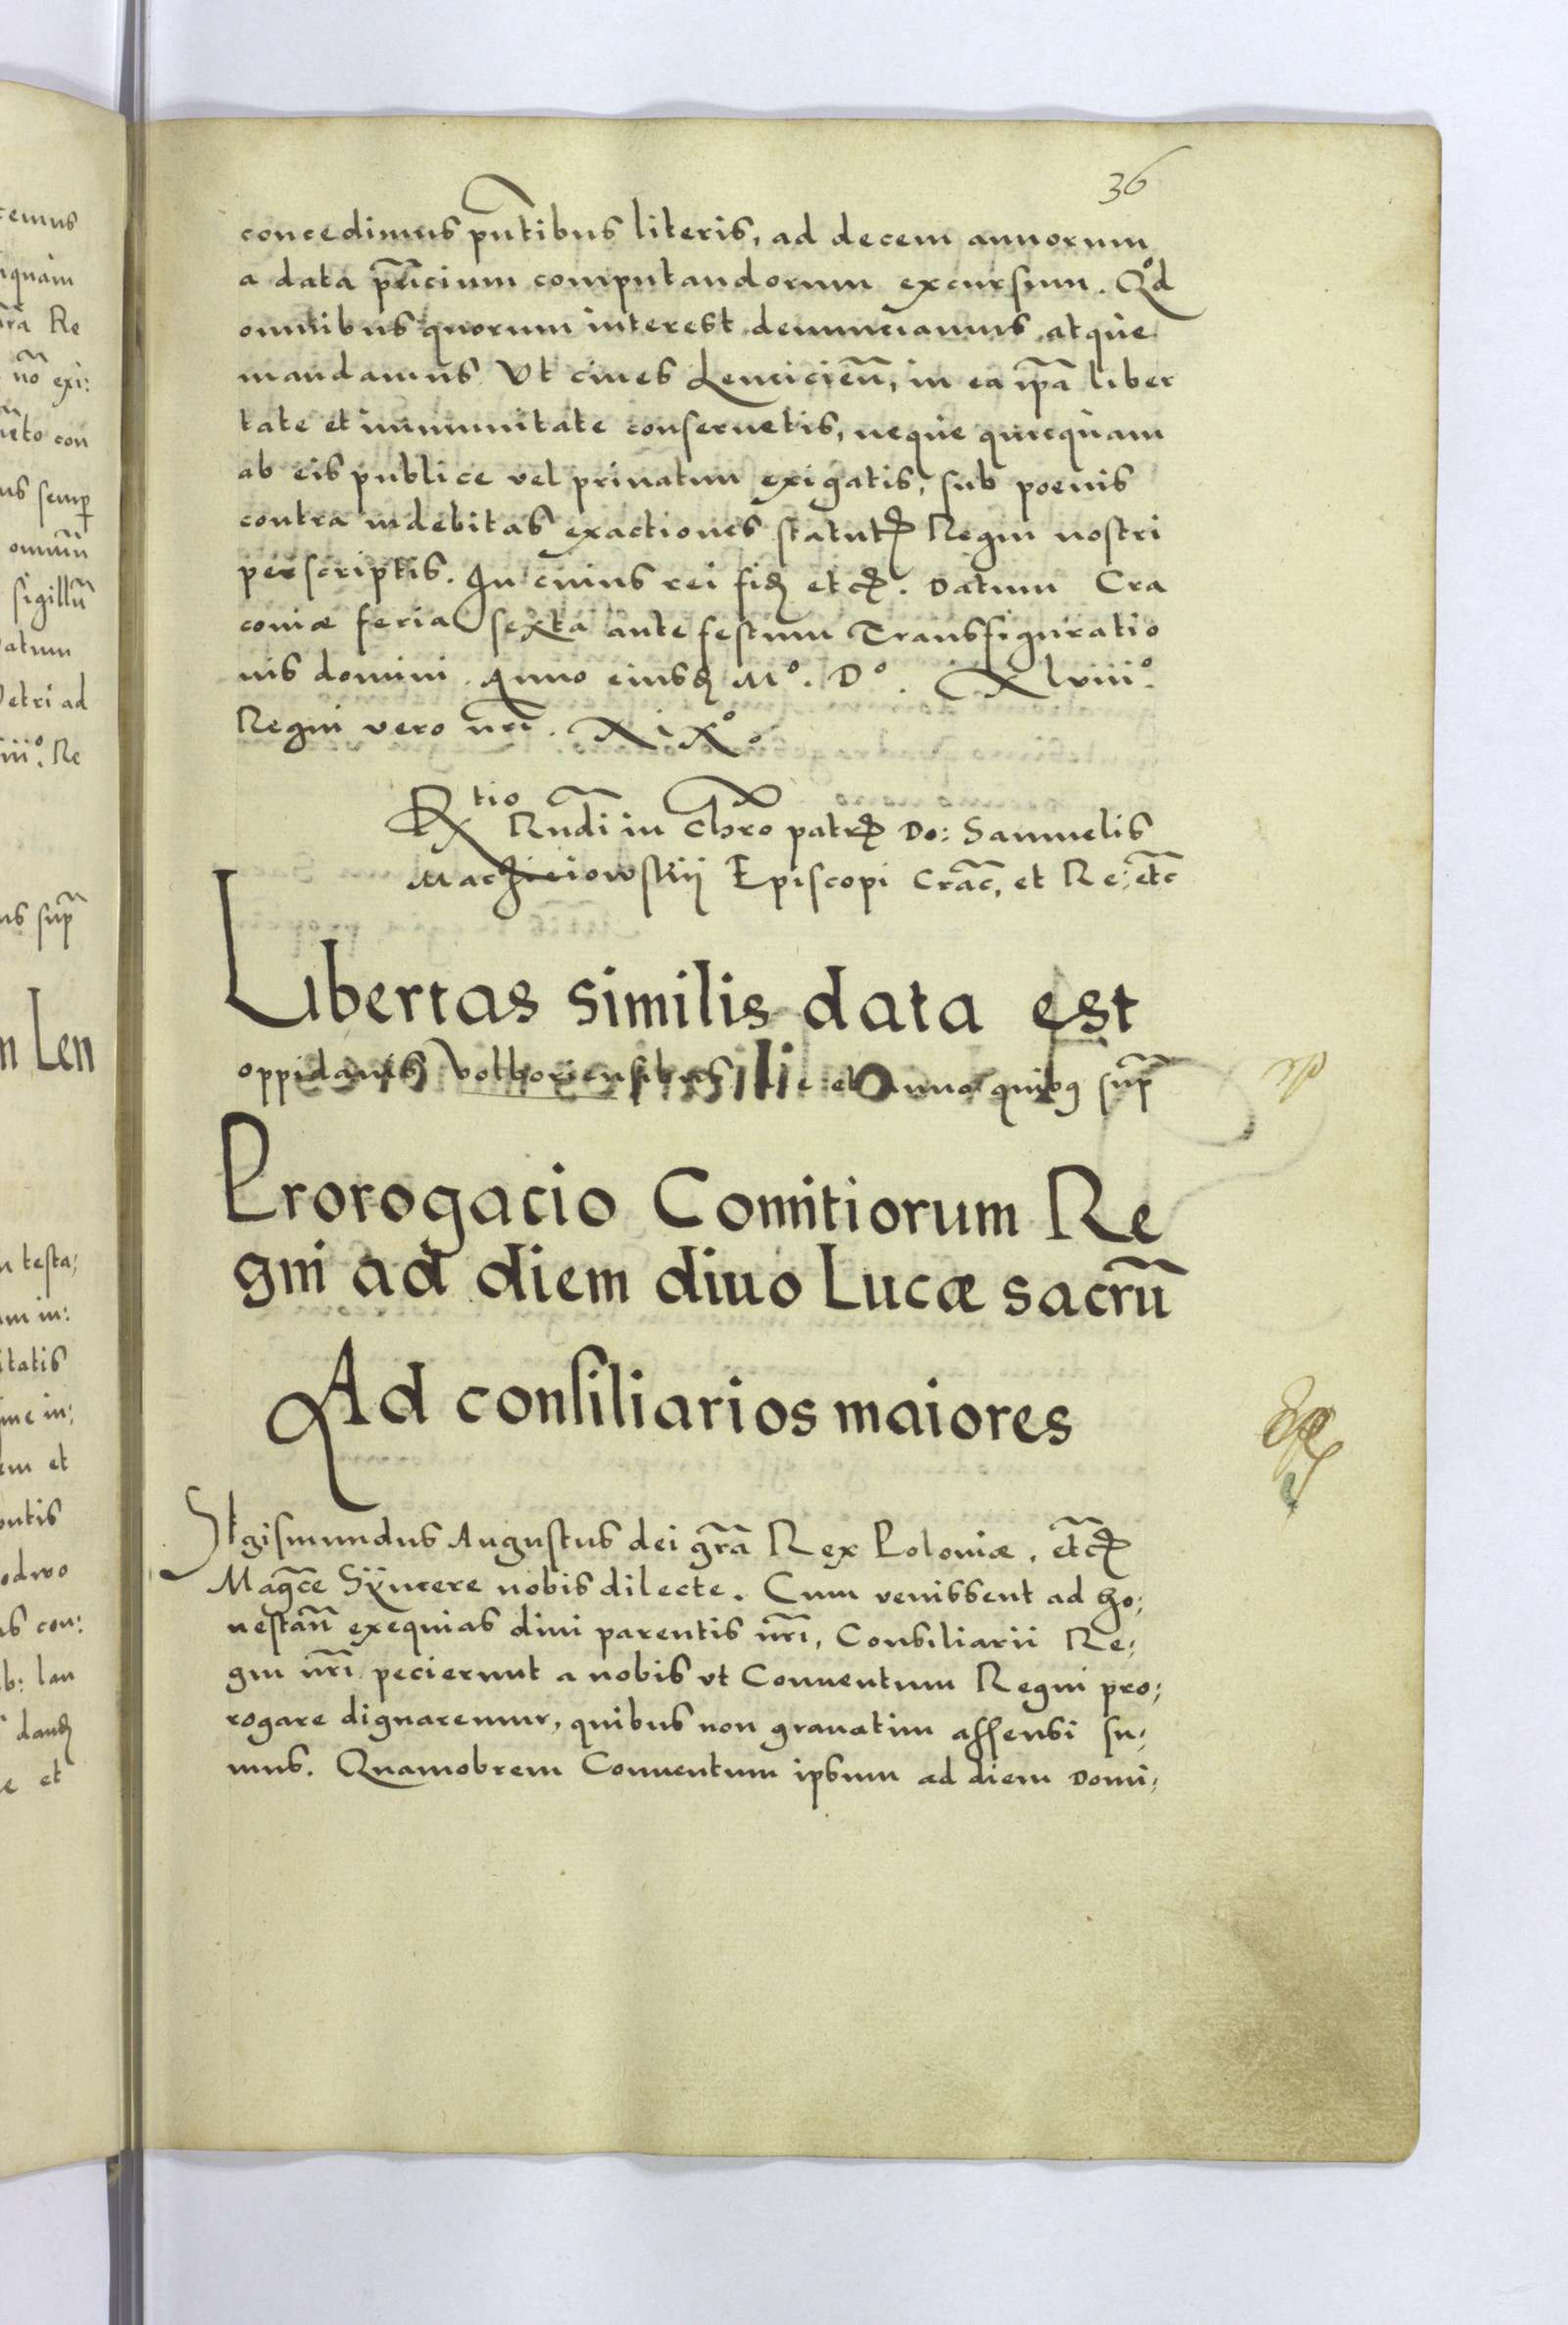 36
concedimus pñtibus literis, ad decem annorum
a data pñcium computandorum excursum. Qod
omnibus quorum interest denunciamus atque
mandamus Vt ciues Lencicieñ, in ea ip̃a liber
tate et immunitate conseruetis, neque quicquam
ab eis publice vel priuatim exigatis, sub poenis
contra indebitas exactiones statut Regni nostri
perscriptis. In cuius rei fid et c. Datum Cra
coniæ feria sexta ante festum Transfiguratio
nis domini Anno eiusd Mº. Dº. Xlviiiº.
Regni vero nr̃i. XiXº.
Rtio Rndi in Chro patr Do: Samuelis
Maczieiowskij Episcopi Crac, et Re: etc
Libertas similis data est
oppidanis Volboriensibus die et anno quibus sup̃
Prorogacio Comitiorum Re
gni ad diem diuo Lucæ sacrũ
Ad consiliarios maiores
Sigismundus Augustus dei gr̃a Rex Poloniæ, etc
Magce Syncere nobis dilecte. Cum venissent ad ho;
nestañ exequias diui parentis nr̃i, Consiliarii Re;
gni nr̃i pecierunt a nobis vt Conuentum Regni pro;
rogare dignaremur, quibus non grauatim assensi su;
mus. Quamobrem Conuentum ipsum ad diem Domi;